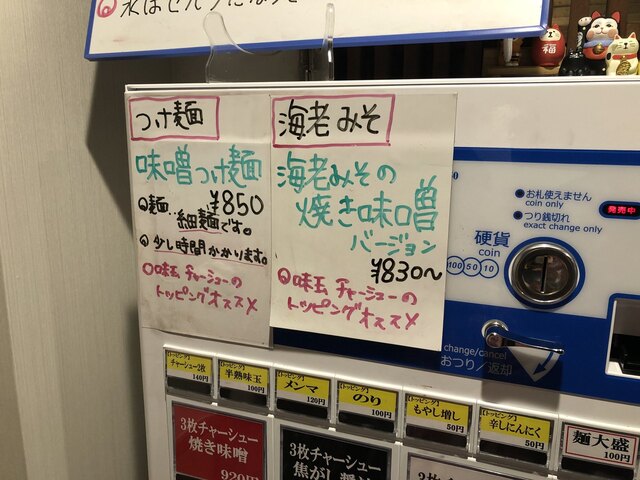 水はセルフになります
福
つけ麺
味噌つけ麺
¥850
麺…細麺です。
少し時間かかります。
味玉 チャーシューの
トッピングオススメ
海老みそ
海老みその
焼き味噌
バージョン
¥830〜
味玉 チャーシューの
トッピングオススメ
お札使えません
coin only
つり銭切れ
exact change only
発売中
硬貨
coin
100 50 10
change/cancel
おつり/返却
【トッピング】
チャーシュー2枚
140円
【トッピング】
半熟味玉
100円
【トッピング】
メンマ
120円
【トッピング】
のり
100円
【トッピング】
もやし増し
50円
【トッピング】
辛しにんにく
50円
麺大盛
100円
3枚チャーシュー
焼き味噌
920円
3枚チャーシュー
3枚チャーシュー